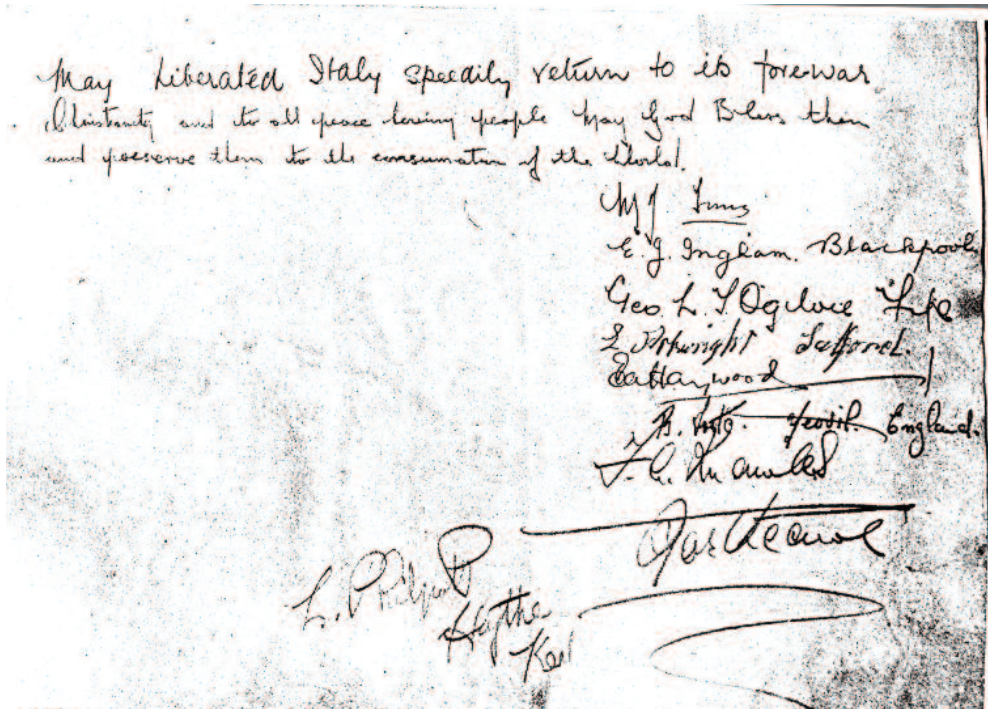 May Liberated Italy speedily return to its fore-war
Christianity and to all peace loving people May God Bless them
and preserve them to the consumation of the World.
M J
E. J. Ingham. Blackpool.
Geo. L. T Ogilvie Fife
Arkwright Salford.
Haywood
B. Yeovil. England.
L. Philpott
Hythe
Kent